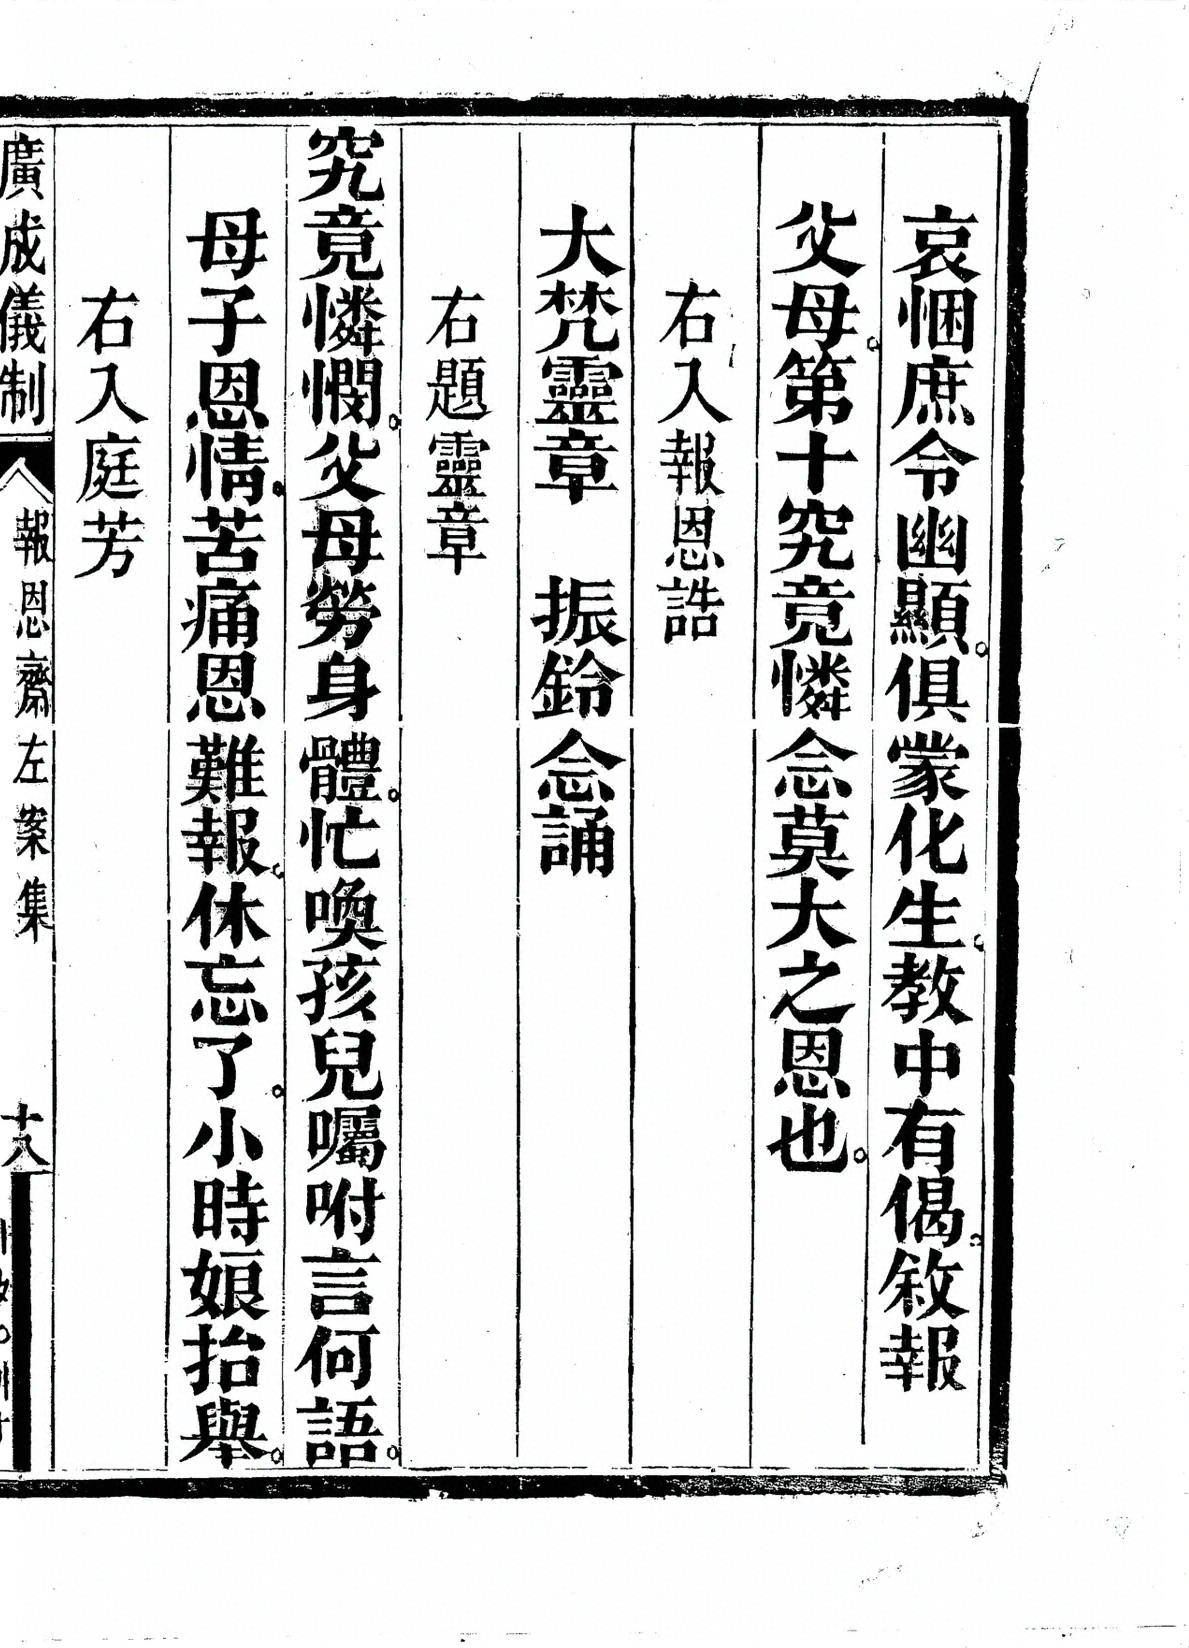 哀悃庶令幽顯。俱蒙化生。教中有偈。敘報
父母。第十究竟憐念莫大之恩也。
右入報恩誥
大梵靈章　振鈴念誦
右題靈章
究竟憐憫。父母勞身體。忙喚孩兒囑咐言何語。
母子恩情。苦痛恩難報。休忘了。小時娘抬舉。
右入庭芳
廣成儀制　報恩齋左案集　十八